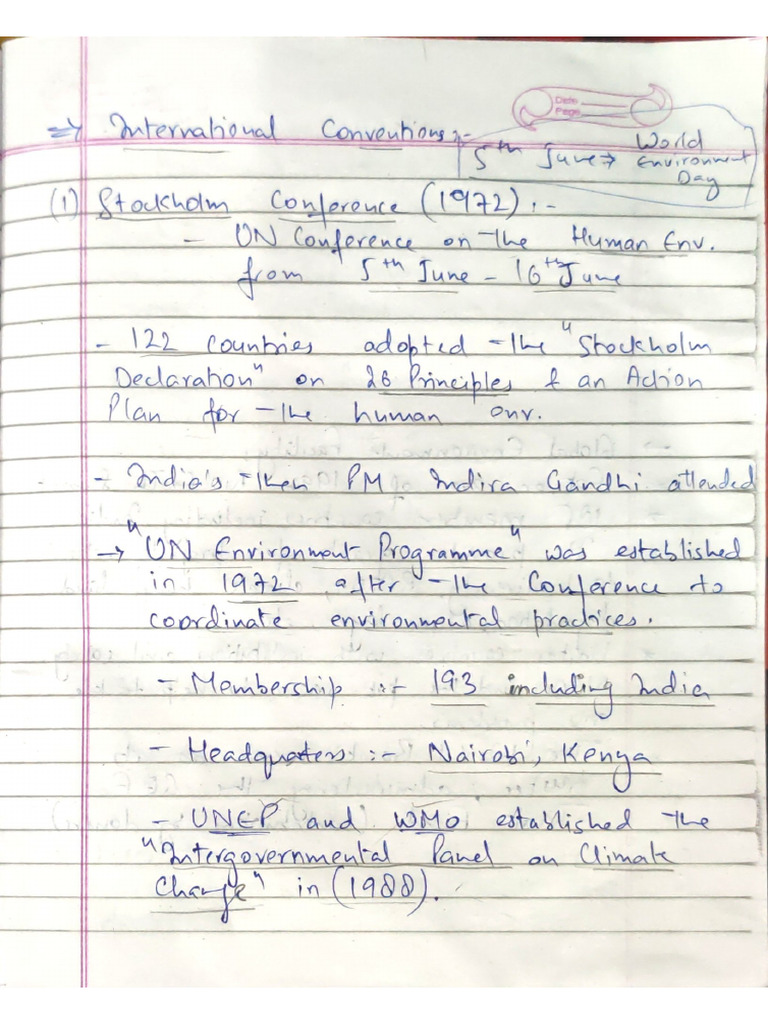 Date
Page
⇒ International Conventions :-
5th June → World
Environment
Day
(1) Stockholm Conference (1972) :-
- UN Conference on the Human Env.
from 5th June - 16th June
- 122 countries adopted the "Stockholm
Declaration" on 26 Principles & an Action
Plan for the human env.
- India's then PM Indira Gandhi attended
→ "UN Environment Programme" was established
in 1972 after the Conference to
coordinate environmental practices.
- Membership :- 193 including India
- Headquaters :- Nairobi, Kenya
- UNEP and WMO established the
"Intergovernmental Panel on Climate
Change" in (1988).